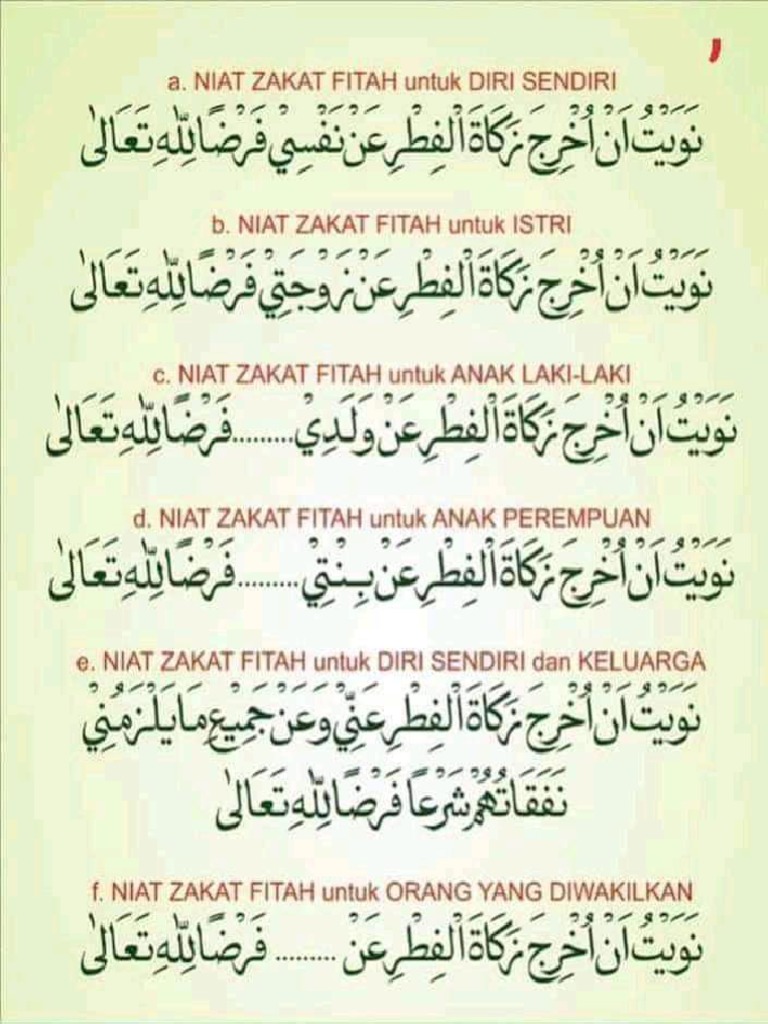 a. NIAT ZAKAT FITAH untuk DIRI SENDIRI
نَوَيْتُ اَنْ اُخْرِجَ زَكَاةَ الْفِطْرِ عَنْ نَفْسِيْ فَرْضًا لِلّٰهِ تَعَالٰى
b. NIAT ZAKAT FITAH untuk ISTRI
نَوَيْتُ اَنْ اُخْرِجَ زَكَاةَ الْفِطْرِ عَنْ زَوْجَتِيْ فَرْضًا لِلّٰهِ تَعَالٰى
c. NIAT ZAKAT FITAH untuk ANAK LAKI-LAKI
نَوَيْتُ اَنْ اُخْرِجَ زَكَاةَ الْفِطْرِ عَنْ وَلَدِيْ ......... فَرْضًا لِلّٰهِ تَعَالٰى
d. NIAT ZAKAT FITAH untuk ANAK PEREMPUAN
نَوَيْتُ اَنْ اُخْرِجَ زَكَاةَ الْفِطْرِ عَنْ بِنْتِيْ ......... فَرْضًا لِلّٰهِ تَعَالٰى
e. NIAT ZAKAT FITAH untuk DIRI SENDIRI dan KELUARGA
نَوَيْتُ اَنْ اُخْرِجَ زَكَاةَ الْفِطْرِ عَنِّيْ وَعَنْ جَمِيْعِ مَا يَلْزَمُنِيْ
نَفَقَاتُهُمْ شَرْعًا فَرْضًا لِلّٰهِ تَعَالٰى
f. NIAT ZAKAT FITAH untuk ORANG YANG DIWAKILKAN
نَوَيْتُ اَنْ اُخْرِجَ زَكَاةَ الْفِطْرِ عَنْ ......... فَرْضًا لِلّٰهِ تَعَالٰى